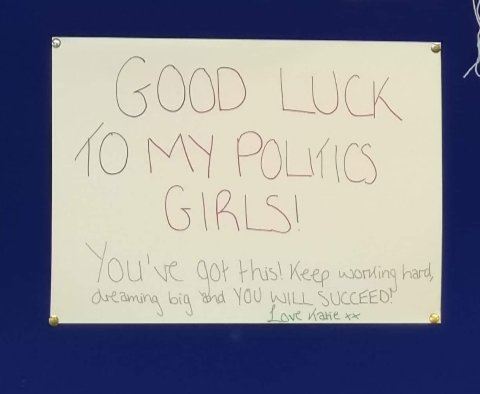 GOOD LUCK
TO MY POLITICS
GIRLS!
You've got this! Keep working hard,
dreaming big and YOU WILL SUCCEED!
Love Katie xx